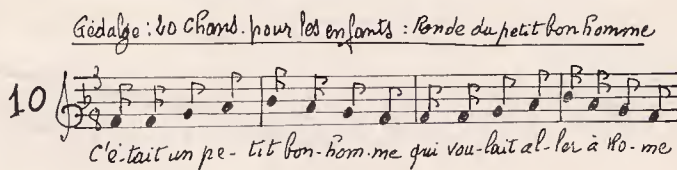 Gédalge : 20 Chans. pour les enfants : Ronde du petit bonhomme
10
3
8
C'é-tait un pe-tit bon-hom-me qui vou-lait al-ler à Ro-me